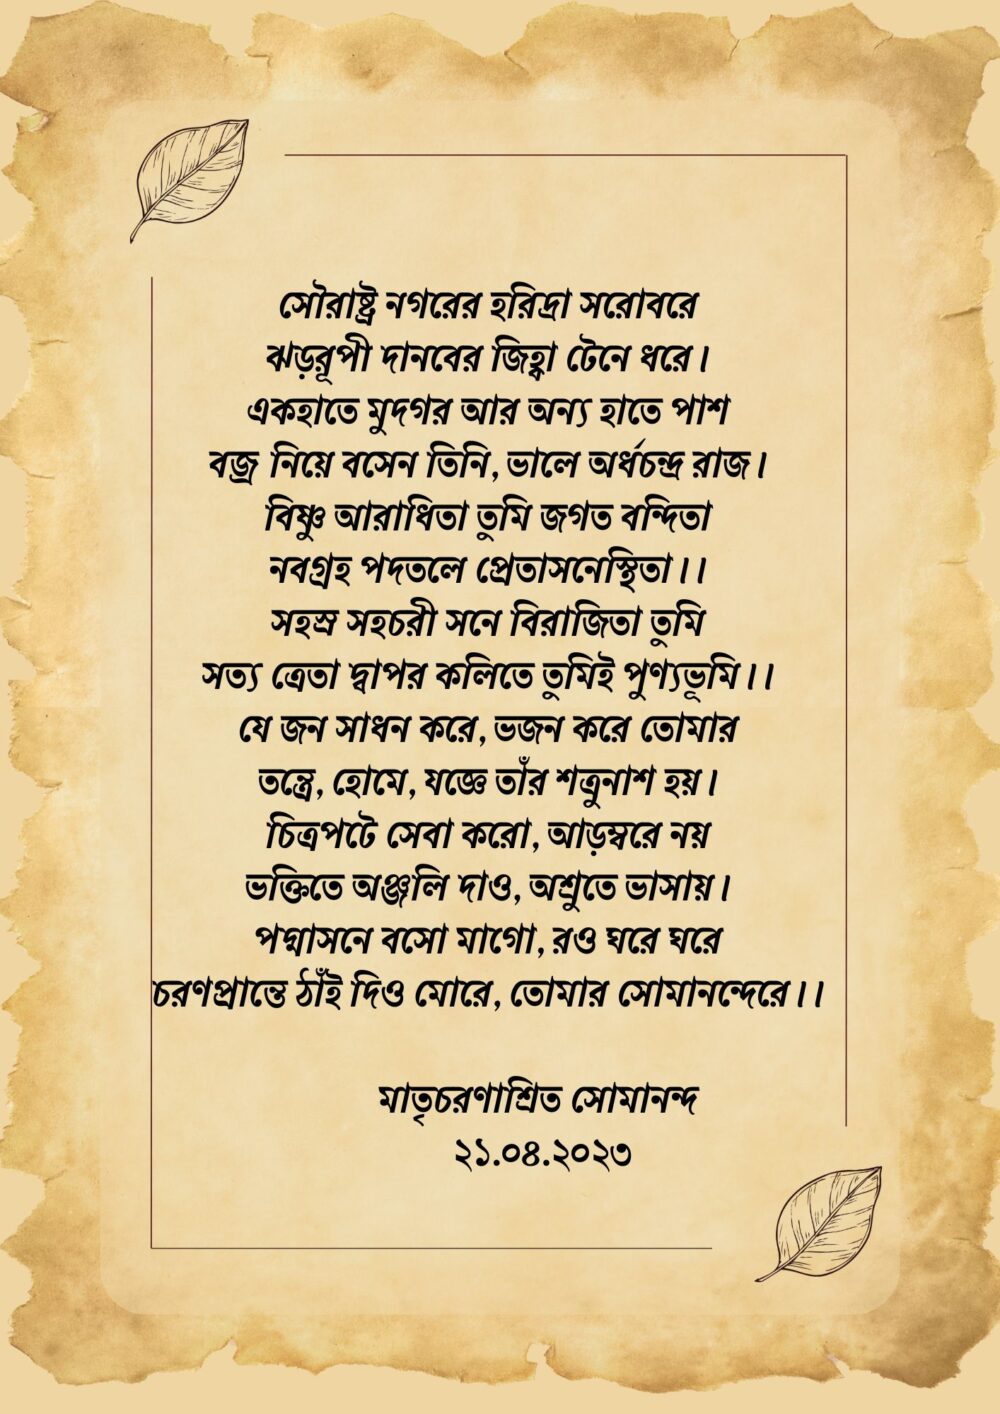 সৌরাষ্ট্র নগরের হরিদ্রা সরোবরে
ঝড়রূপী দানবের জিহ্বা টেনে ধরে।
একহাতে মুদগর আর অন্য হাতে পাশ
বজ্র নিয়ে বসেন তিনি, ভালে অর্ধচন্দ্র রাজ।
বিষ্ণু আরাধিতা তুমি জগত বন্দিতা
নবগ্রহ পদতলে প্রেতাসনেস্থিতা।।
সহস্র সহচরী সনে বিরাজিতা তুমি
সত্য ত্রেতা দ্বাপর কলিতে তুমিই পুণ্যভূমি।।
যে জন সাধন করে, ভজন করে তোমার
তন্ত্রে, হোমে, যজ্ঞে তাঁর শত্রুনাশ হয়।
চিত্রপটে সেবা করো, আড়ম্বরে নয়
ভক্তিতে অঞ্জলি দাও, অশ্রুতে ভাসায়।
পদ্মাসনে বসো মাগো, রও ঘরে ঘরে
চরণপ্রান্তে ঠাঁই দিও মোরে, তোমার সোমানন্দেরে।।
মাতৃচরণাশ্রিত সোমানন্দ
২১.০৪.২০২৩